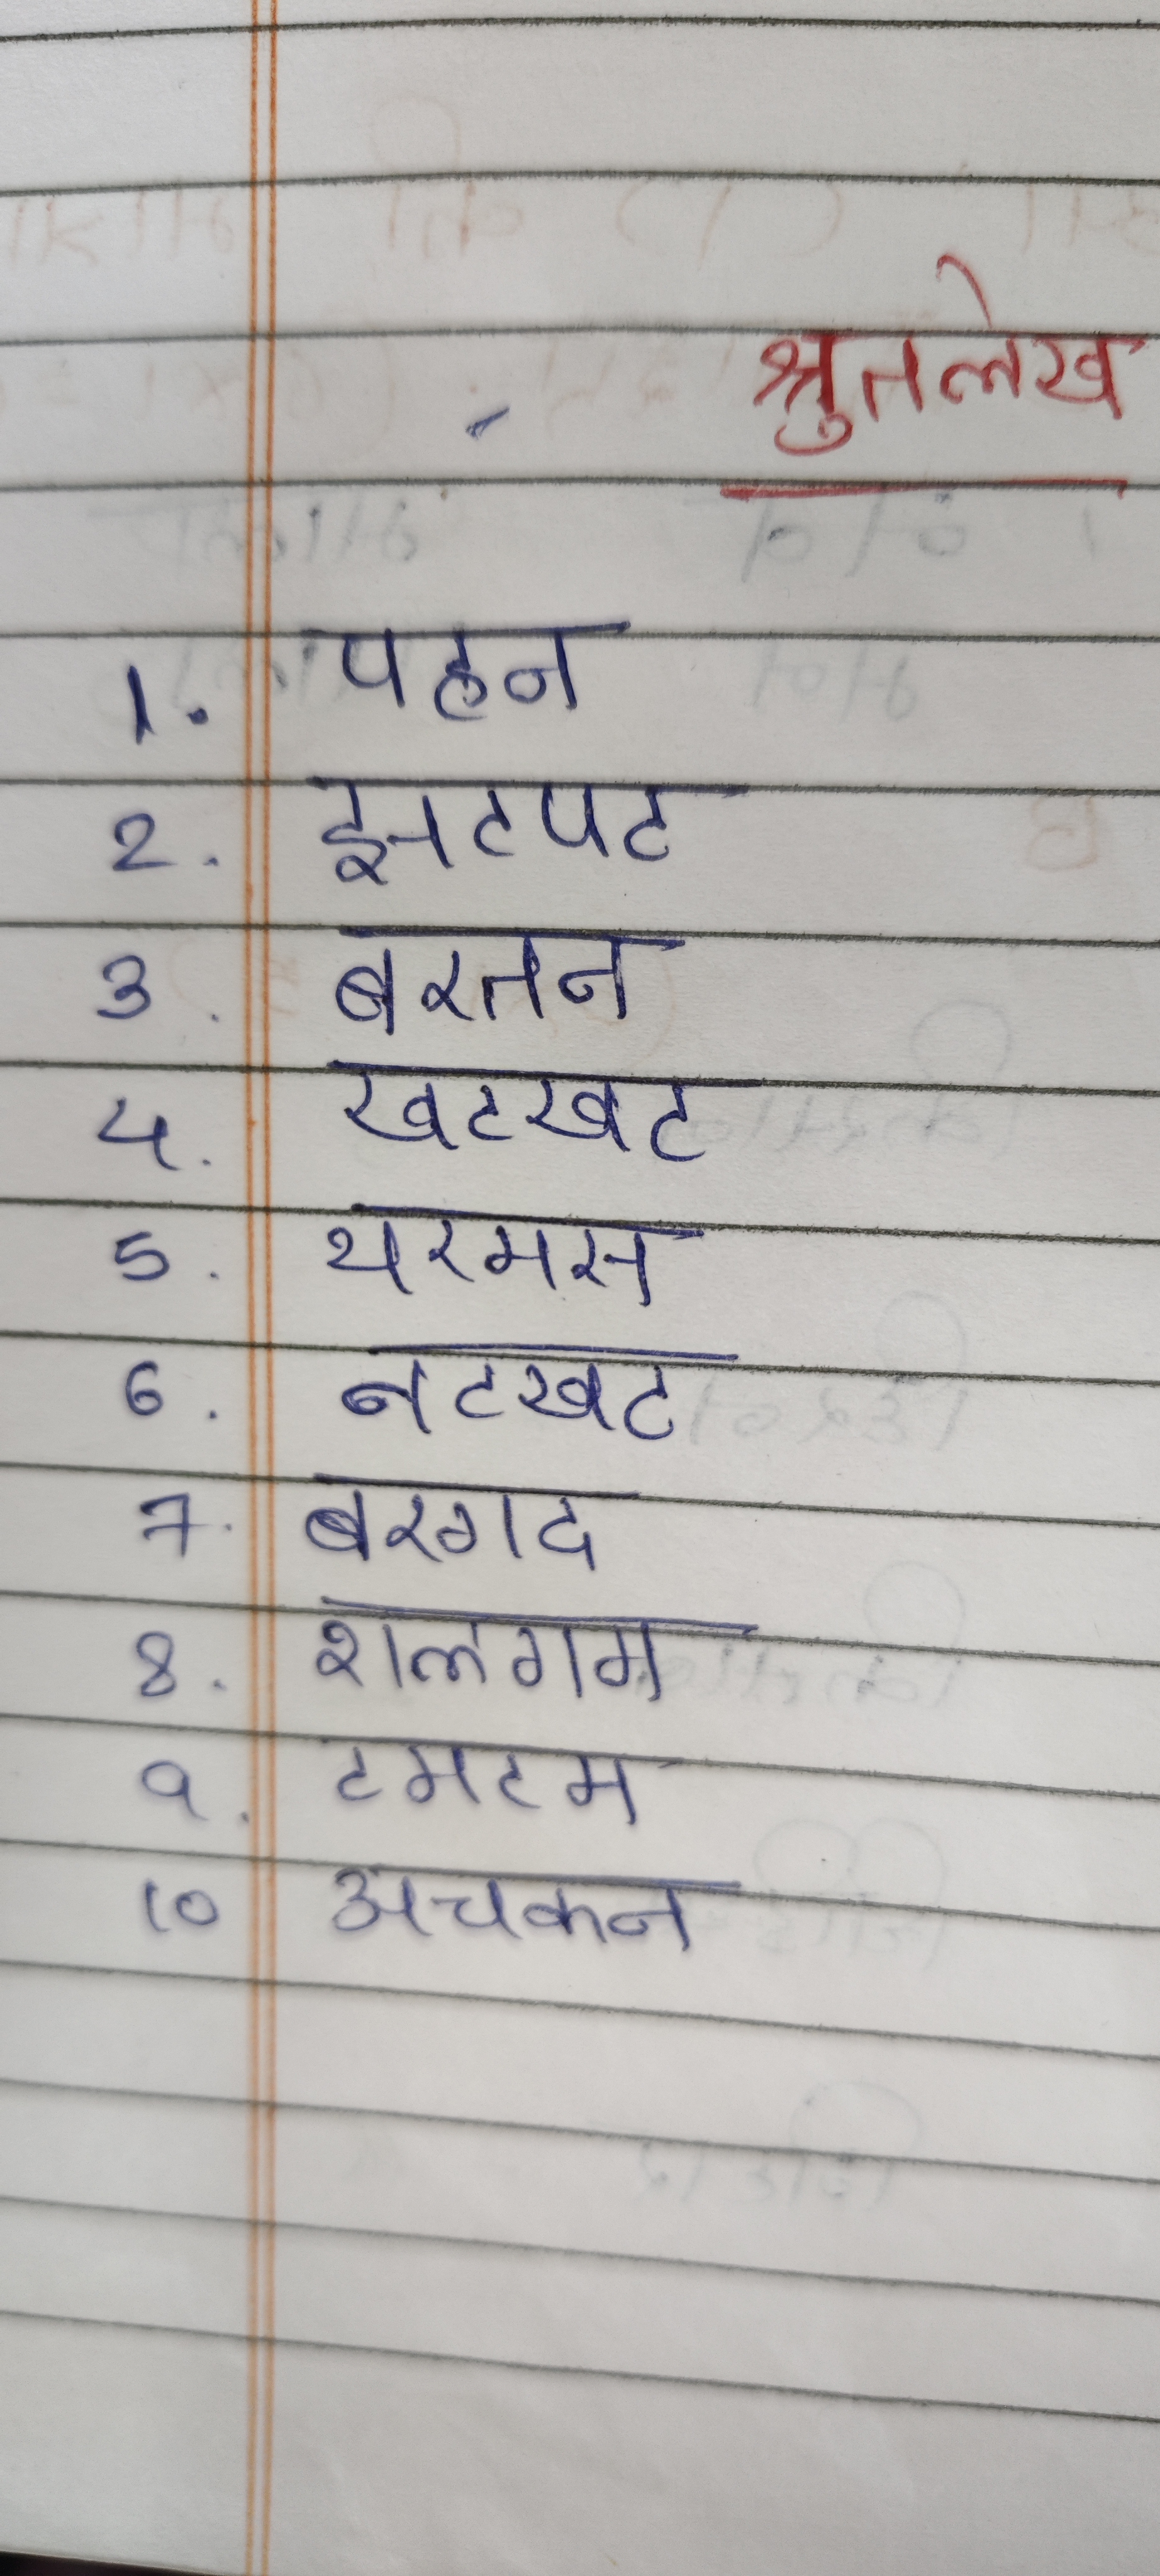 श्रुतलेख
1. पहन
2. झटपट
3. बरतन
4. खटखट
5. थरमस
6. नटखट
7. बरगद
8. शलगम
9. टमटम
10 अचकन